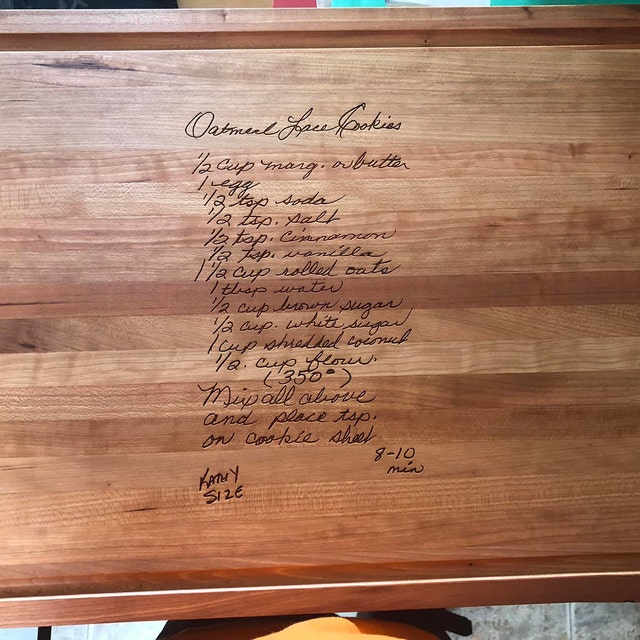 Oatmeal Lace Cookies
1/2 cup marg. or butter
1 egg
1/2 tsp soda
1/2 tsp. salt
1/2 tsp. cinnamon
1/2 tsp. vanilla
1 1/2 cup rolled oats
1 tbsp water
1/2 cup brown sugar
1/2 cup. white sugar
1 cup shredded coconut
1/2. cup flour.
(350°)
Mix all above
and place tsp.
on cookie sheet
8-10
min
KATHY
SIZE